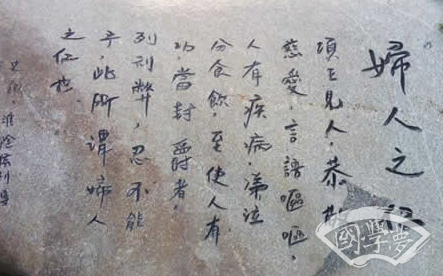 婦人之仁
項王見人,恭敬
慈愛,言語嘔嘔,
人有疾病,涕泣
分食飲,至使人有
功,當封爵者,
印刓弊,忍不能
予,此所謂婦人
之仁也。
史記,淮陰侯列傳
國學夢